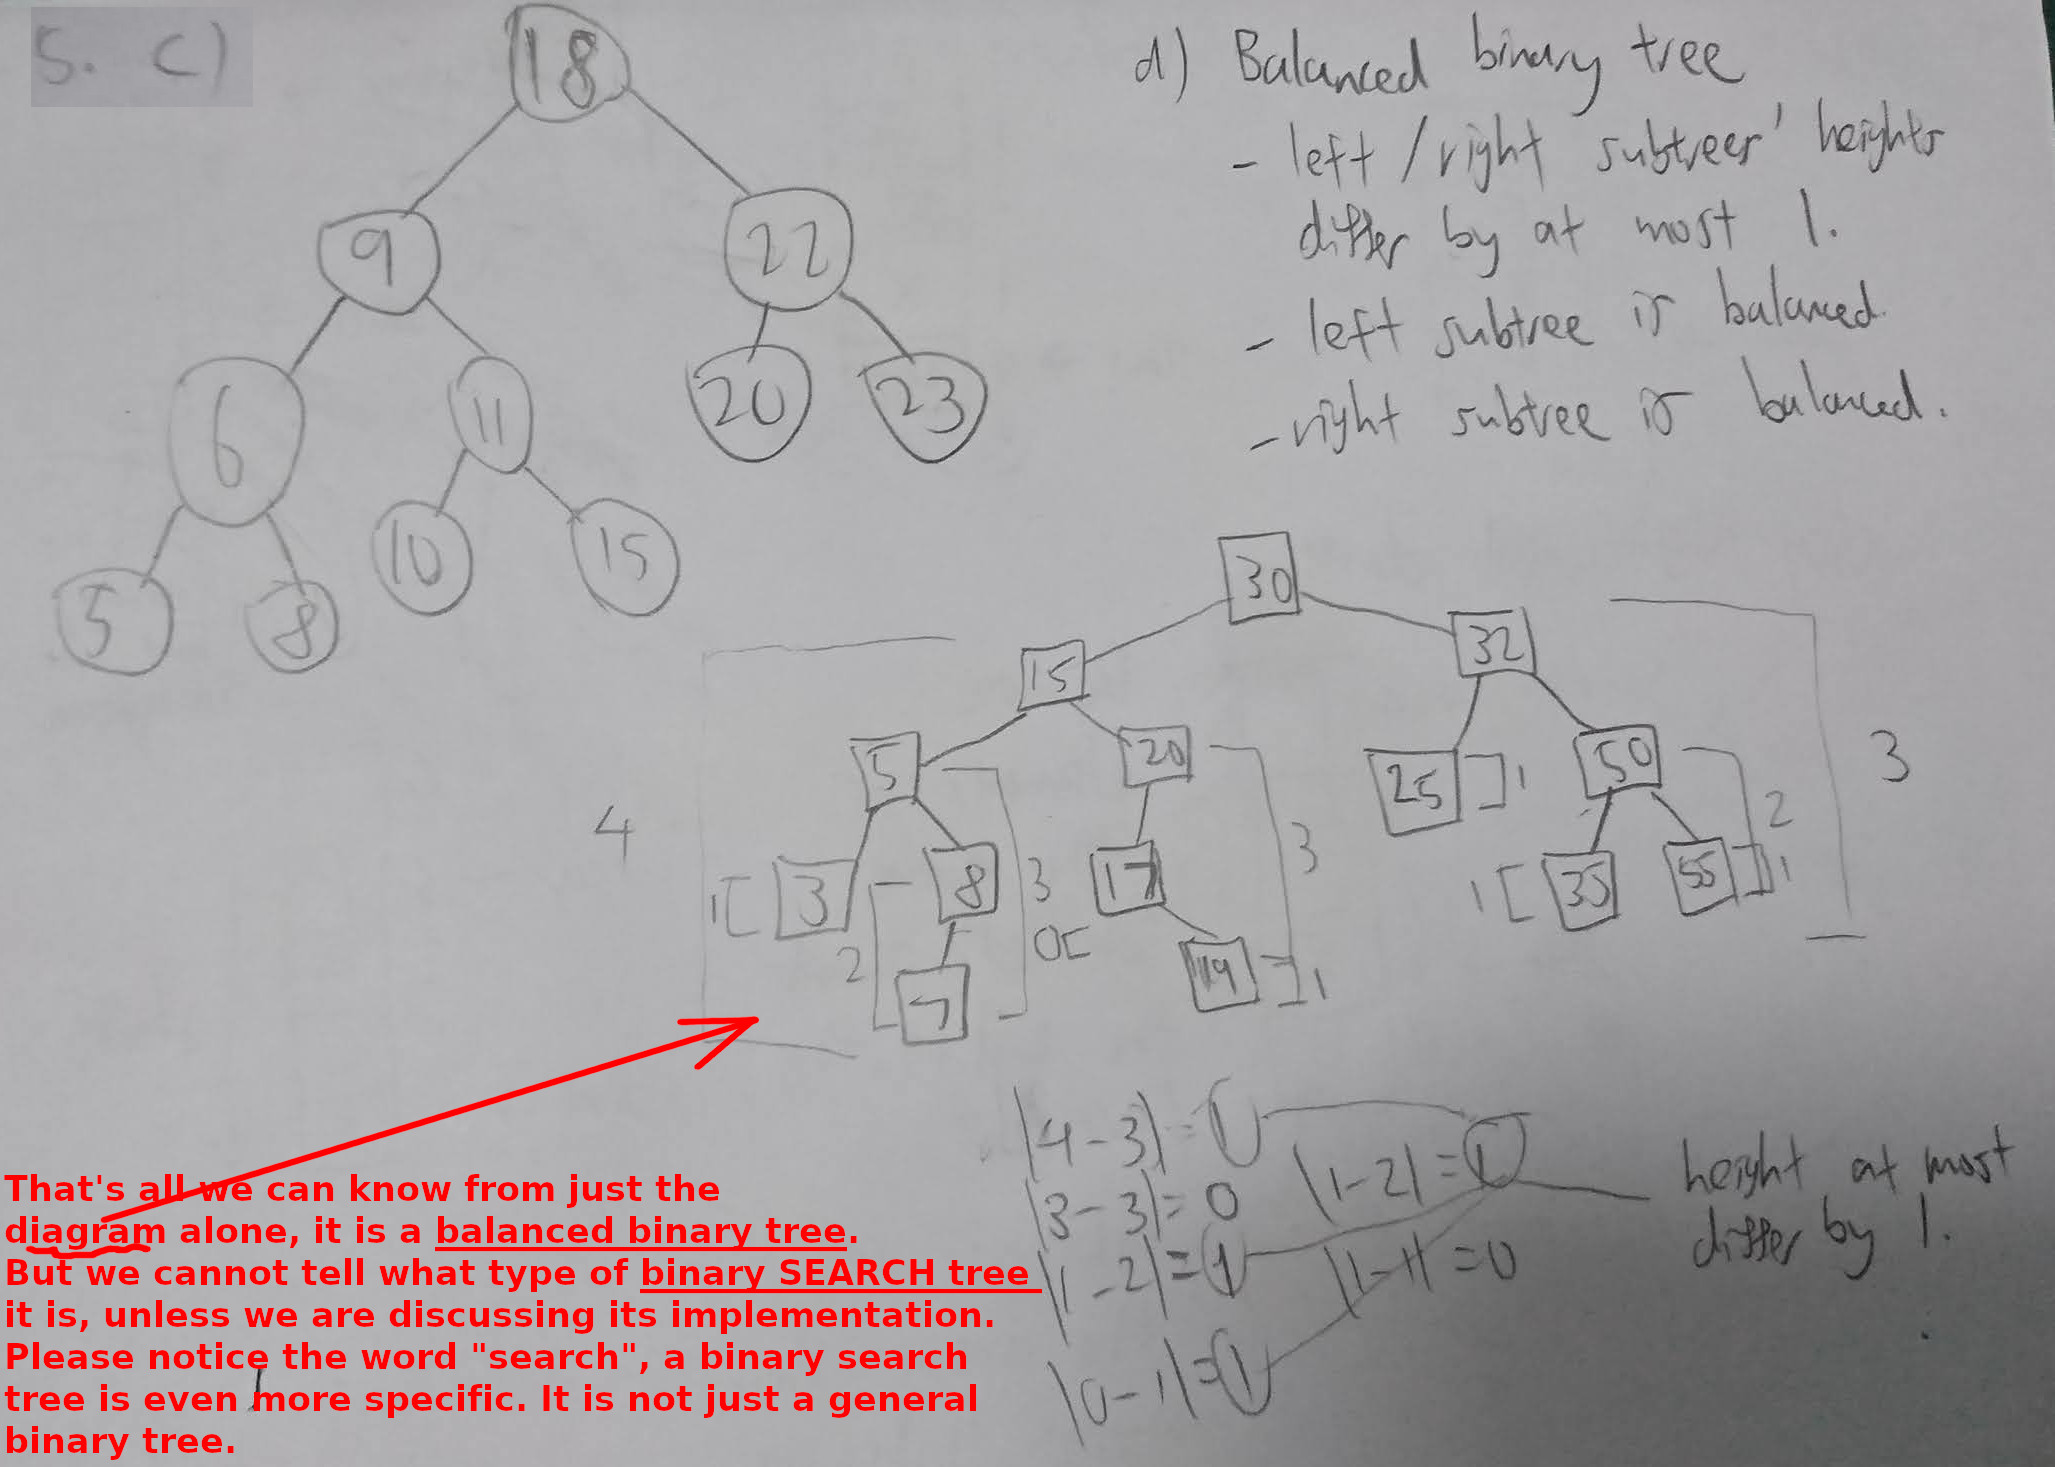 5. c)
18
9
22
6
11
20
23
5
8
10
15
d) Balanced binary tree
- left/right subtrees' heights
differ by at most 1.
- left subtree is balanced.
- right subtree is balanced.
30
15
32
5
20
25
1
50
3
4
3
8
3
17
3
35
55
2
1
1
1
2
7
0
19
1
|4-3| = 1
|1-2| = 1
|3-3| = 0
|1-2| = 1
|1-1| = 0
|0-1| = 1
height at most
differ by 1.
That's all we can know from just the
diagram alone, it is a balanced binary tree.
But we cannot tell what type of binary SEARCH tree
it is, unless we are discussing its implementation.
Please notice the word "search", a binary search
tree is even more specific. It is not just a general
binary tree.